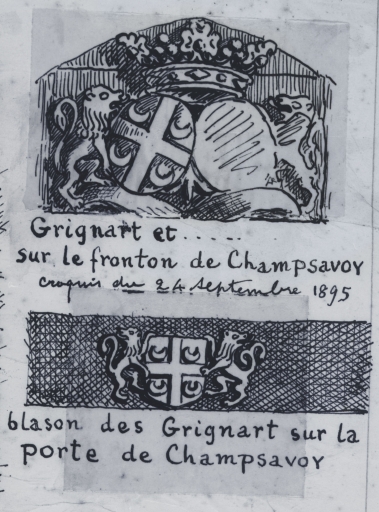 Grignart et .....
sur le fronton de Champsavoy
croquis du 24 septembre 1895
blason des Grignart sur la
porte de Champsavoy